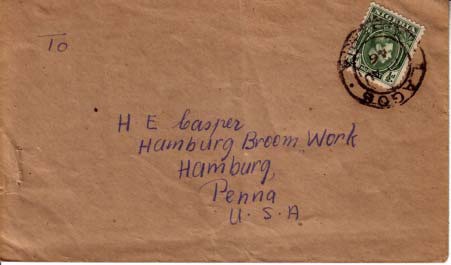 To
NIGERIA
LAGOS
H E Casper
Hamburg Broom Work
Hamburg,
Penna
U. S. A